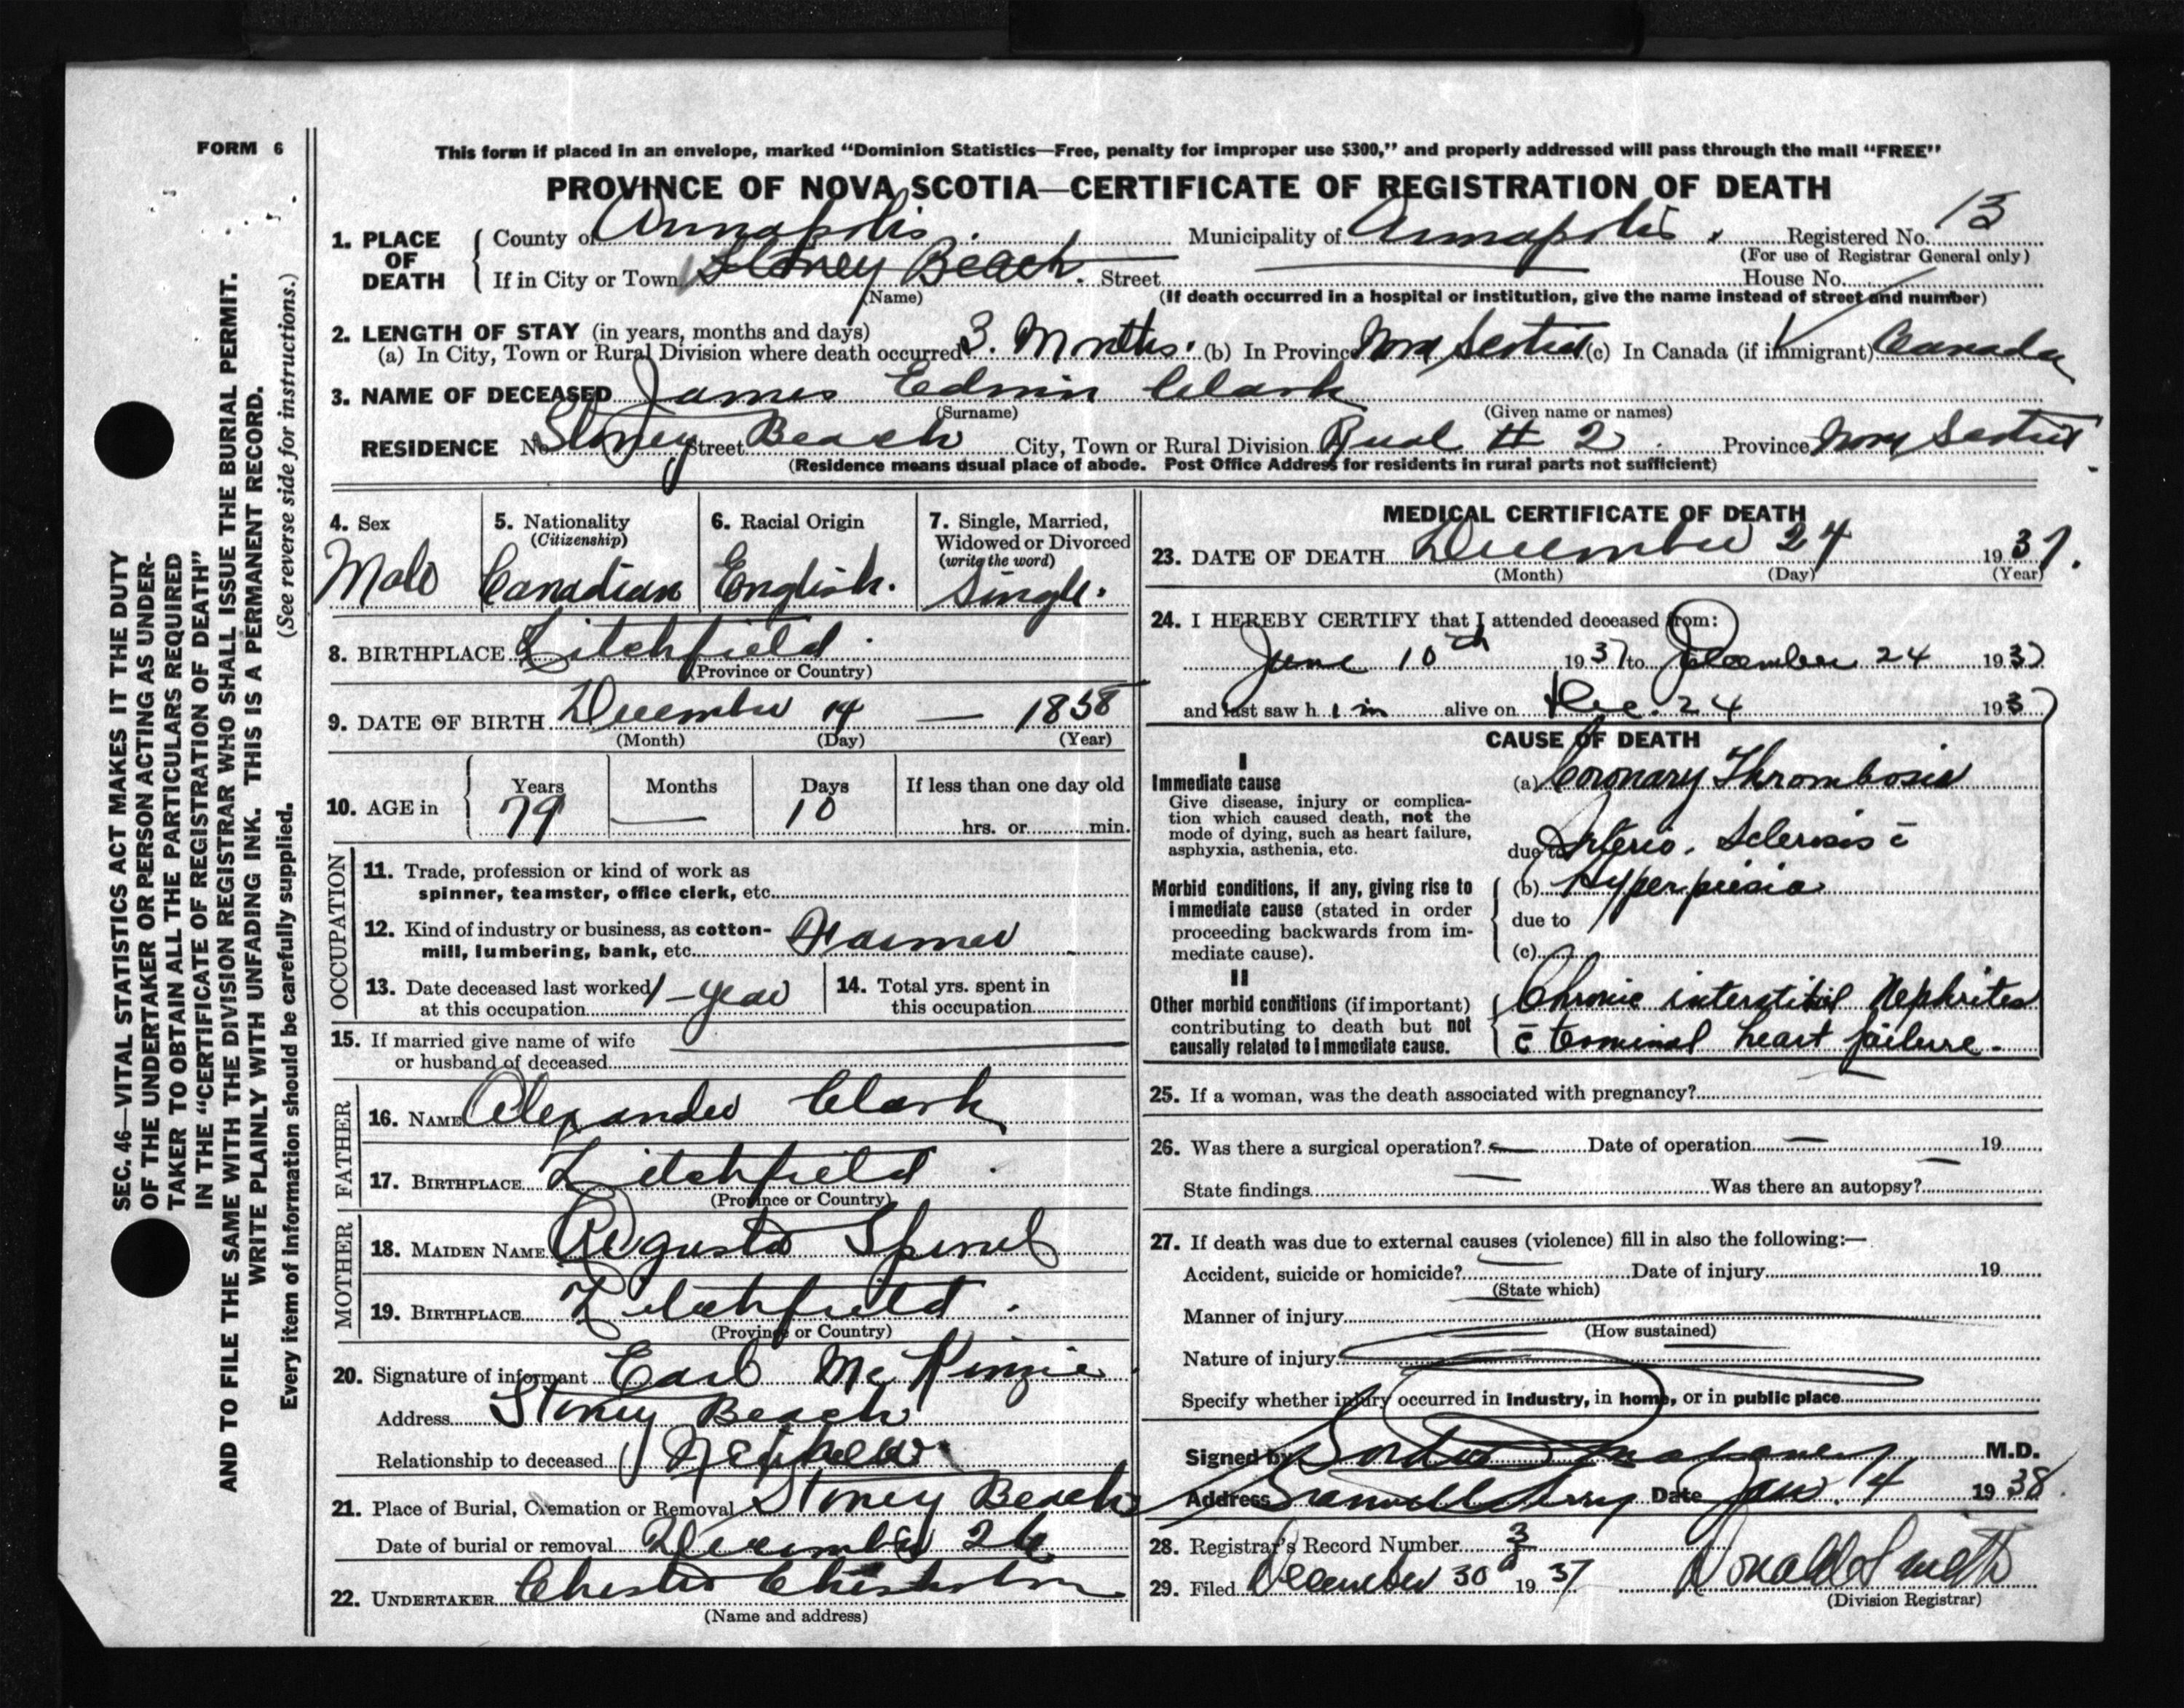 FORM 6
This form if placed in an envelope, marked “Dominion Statistics—Free, penalty for improper use $300,” and properly addressed will pass through the mail “FREE”
PROVINCE OF NOVA SCOTIA—CERTIFICATE OF REGISTRATION OF DEATH
1. PLACE OF DEATH { County of Annapolis. Municipality of Annapolis. Registered No. 13
(For use of Registrar General only)
If in City or Town Stoney Beach. Street House No.
(Name) (If death occurred in a hospital or institution, give the name instead of street and number)
2. LENGTH OF STAY (in years, months and days)
(a) In City, Town or Rural Division where death occurred 3. Months. (b) In Province Nova Scotia (c) In Canada (if immigrant) Canada
3. NAME OF DECEASED James Edwin Clark
(Surname) (Given name or names)
RESIDENCE No. Stoney Street Beach City, Town or Rural Division Rual # 2. Province Nova Scotia
(Residence means usual place of abode. Post Office Address for residents in rural parts not sufficient)
4. Sex Male
5. Nationality (Citizenship) Canadian
6. Racial Origin English.
7. Single, Married, Widowed or Divorced (write the word) Single.
8. BIRTHPLACE Litchfield.
(Province or Country)
9. DATE OF BIRTH December 14 — 1858
(Month) (Day) (Year)
10. AGE in { Years 79 Months — Days 10 If less than one day old
hrs. or min.
OCCUPATION
11. Trade, profession or kind of work as
spinner, teamster, office clerk, etc.
12. Kind of industry or business, as cotton-
mill, lumbering, bank, etc. Farmer
13. Date deceased last worked at this occupation 1 - year
14. Total yrs. spent in this occupation
15. If married give name of wife
or husband of deceased
FATHER
16. NAME Alexander Clark
17. BIRTHPLACE Litchfield.
(Province or Country)
MOTHER
18. MAIDEN NAME Augusta
19. BIRTHPLACE Litchfield.
(Province or Country)
20. Signature of informant Earl McKinzie
Address Stoney Beach
Relationship to deceased Nephew
21. Place of Burial, Cremation or Removal Stoney Beach
Date of burial or removal December 26
22. UNDERTAKER Chester Chisholm
(Name and address)
MEDICAL CERTIFICATE OF DEATH
23. DATE OF DEATH December 24 1937.
(Month) (Day) (Year)
24. I HEREBY CERTIFY that I attended deceased from:
June 10th 1937 to December 24 1937
and last saw h im alive on Dec. 24 1937
CAUSE OF DEATH
I
Immediate cause (a) Coronary Thrombosis
Give disease, injury or complica-
tion which caused death, not the
mode of dying, such as heart failure,
asphyxia, asthenia, etc.
due to Arterio. Sclerosis c̄
Morbid conditions, if any, giving rise to
immediate cause (stated in order
proceeding backwards from im-
mediate cause).
(b) Hyperpiesia
due to
(c)
II
Other morbid conditions (if important)
contributing to death but not
causally related to immediate cause.
Chronic interstitial Nephrites
c̄ terminal heart failure.
25. If a woman, was the death associated with pregnancy? —
26. Was there a surgical operation? — Date of operation — 19
State findings — Was there an autopsy? —
27. If death was due to external causes (violence) fill in also the following:—
Accident, suicide or homicide? — Date of injury 19
(State which)
Manner of injury
(How sustained)
Nature of injury
Specify whether injury occurred in industry, in home, or in public place
Signed by M.D.
Address Date Jan. 4 1938.
28. Registrar's Record Number 3
29. Filed December 30 1937 Donald Smith
(Division Registrar)
SEC. 46—VITAL STATISTICS ACT MAKES IT THE DUTY
OF THE UNDERTAKER OR PERSON ACTING AS UNDER-
TAKER TO OBTAIN ALL THE PARTICULARS REQUIRED
IN THE “CERTIFICATE OF REGISTRATION OF DEATH”
AND TO FILE THE SAME WITH THE DIVISION REGISTRAR WHO SHALL ISSUE THE BURIAL PERMIT.
WRITE PLAINLY WITH UNFADING INK. THIS IS A PERMANENT RECORD.
Every item of information should be carefully supplied. (See reverse side for instructions.)